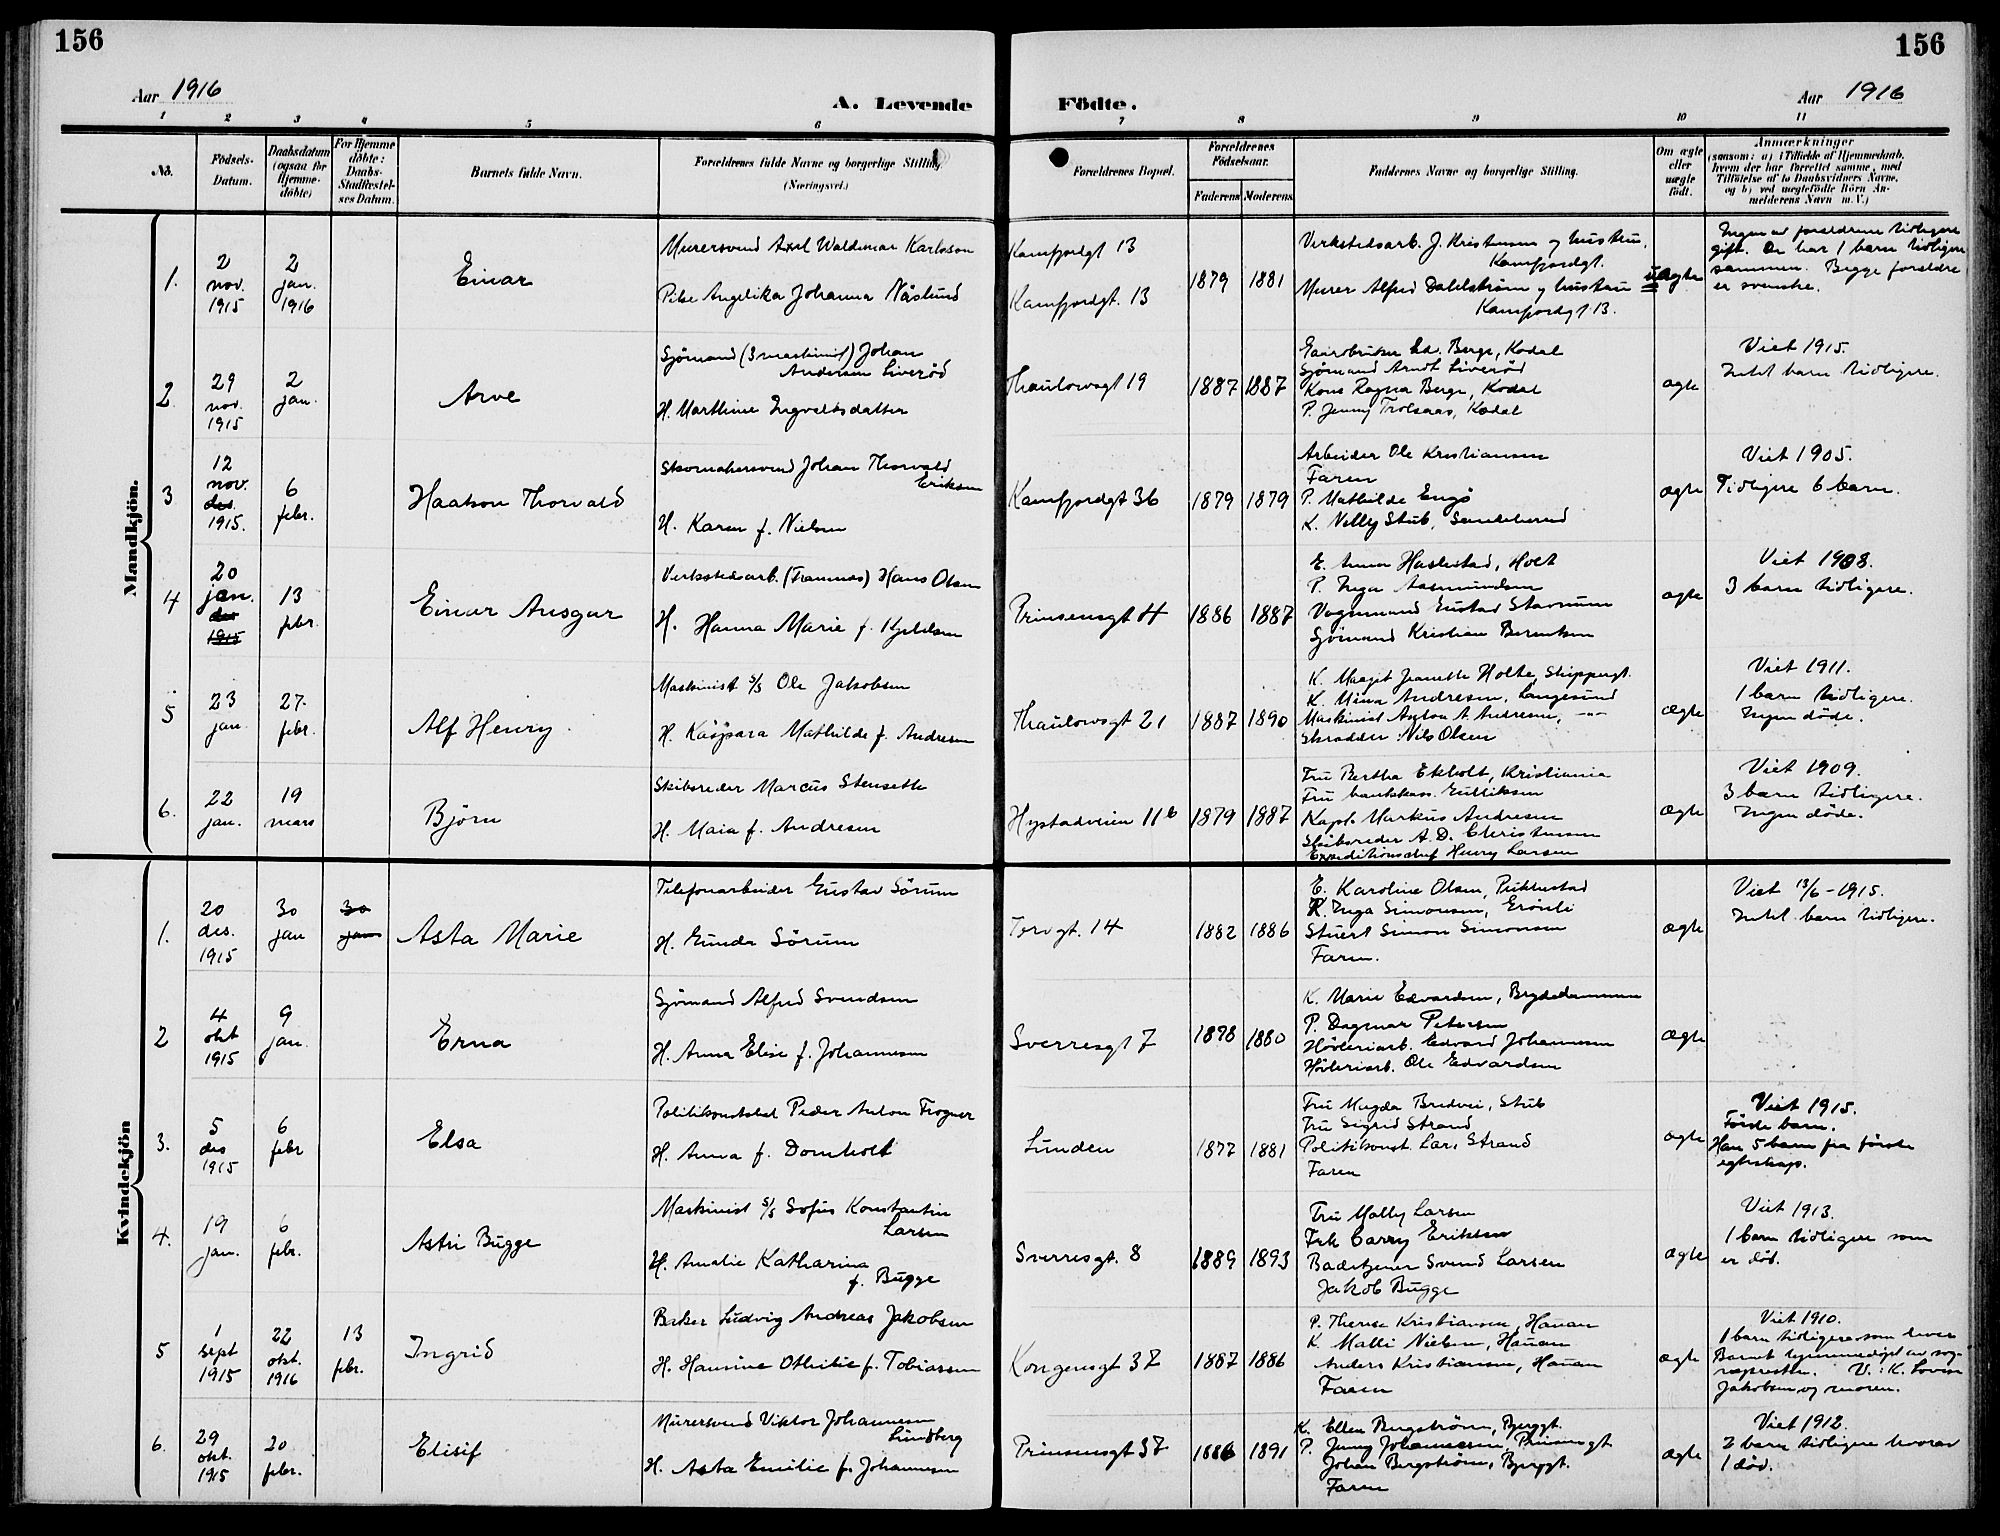 156
156
Aar 1916
A. Levende
Födte.
Aar 1916
1 2 3 4 5 6 7 8 9 10 11
No.
Födsels-
Datum.
Daabsdatum
(ogsaa for
Hjemme-
döbte)
For Hjemme
döbte:
Daabs-
Stadfæstel-
ses Datum.
Barnets fulde Navn.
Forældrenes fulde Navne og borgerlige Stilling
(Næringsvei.)
Forældrenes Bopæl.
Forældrenes
Födselsaar.
Faderens
Moderens
Faddernes Navne og borgerlige Stilling.
Om ægte
eller
uægte
födt.
Anmærkninger
(saasom: a) i Tilfælde af Hjemmedaab,
hvem der har forrettet samme, med
Tilföielse af to Daabsvidners Navne,
og b) ved uægtefödte Börn An-
melderens Navn m. V.)
Mandkjön.
1.
2
nov.
1915
2
jan.
1916
Einar
Murersvend Axel Waldemar Karlsson
Pike Angelika Johanna Näslund
Kamfjordgt 13
Kamfjordgt. 13
1879
1881
Verkstedsarb. J. Kristensen og hustru,
Kamfjordgt.
Murer Alfred Dahlström og hustru
Kamfjordgt 13.
uægte
Ingen av forældrene tidligere
gift. De har 1 barn tidligere
sammen. Begge forældre
er svenske.
2.
29
nov.
1915
2
jan.
Arve
Sjömand (3 maskinist) Johan
Andersen Liveröd
H. Marthine Ingvaldsdatter
Thaulowsgt 19
1887
1887
Gaardbruker Edv. Berge, Kodal
Sjömand Arndt Liveröd
Kone Ragna Berge, Kodal
P. Jenny Trolsaas, Kodal
ægte
Viet 1915.
Intet barn tidligere.
3
12
nov.
des.
1915.
6
febr.
Haakon Thorvald
Skomakersvend Johan Thorvald
Eriksen
H. Karen f. Nielsen
Kamfjordgt 36
1879
1879
Arbeider Ole Kristiansen
Faren
P. Mathilde Engö
K. Nelly Stub, Sandeherred
ægte
Viet 1905.
Tidligere 6 barn.
4
20
jan.
des
1915
13
febr.
Einar Ansgar
Verkstedsarb. (Framnæs) Hans Olsen
H. Hanna Marie f. Kjeldsen
Prinsensgt 4
1886
1887
E. Anna Haslestad, Holt
P. Inga Aasmundsen
Vognmand Gustav Stavnum
Sjömand Kristian Berntsen
ægte
Viet 1908.
3 barn tidligere.
5
23
jan.
27.
febr.
Alf Henry.
Maskinist S/S Ole Jakobsen
H. Kaspara Mathilde f. Andresen
Thaulowsgt 21
1887
1890
K. Margit Jeanette Holte, Skippergt.
K. Mina Andresen, Langesund
Maskinist Anton A. Andresen, -"-
Skrædder Nils Olsen
ægte
Viet 1911.
1 barn tidligere.
Ingen döde.
6.
22
jan.
19
mars
Björn
Skibsreder Marcus Stenseth
H. Maia f. Andresen
Hystadveien 11b
1879
1887
Fru Bertha Ekholt, Kristiania
Fru bankkass. Gulliksen
Kapt. Markus Andresen
Skibsreder A. D. Christensen
Expeditionschef Henry Larsen
ægte
Viet 1909.
3 barn tidligere.
Ingen döde.
Kvindekjön
1.
20
des.
1915
30
jan
30
jan
Asta Marie
Telefonarbeider Gustav Sörum
H. Gunda Sörum
Torvgt. 14
1882
1886
E. Karoline Olsen, Pukkestad
K. Inga Simonsen, Grönli
Stuert Simon Simonsen
Faren.
ægte
Viet 13/6-1915.
Intet barn tidligere.
2
4
okt
1915
9
jan.
Erna
Sjömand Alfred Svendsen
H. Anna Elise f. Johannesen
Sverresgt 7
1878
1880
K. Marie Edvardsen, Brydedammen
P. Dagmar Petersen
Høvleriarb. Edvard Johannesen
Høvleriarb. Ole Edvardsen
ægte
3.
5
des
1915
6
febr
Elsa
Politikonstabel Peder Anton Trogner
H. Anna f. Domholt
Lunden
1872
1881
Fru Magda Bredvei, Stub
Fru Sigrid Strand
Politikonst. Lars Strand
Faren
ægte
Viet 1915.
Förste barn.
Han 5 barn fra förste
egteskap.
4.
19
jan.
6
febr.
Astri Bugge
Maskinist S/S Sofus Konstantin
Larsen
H. Amalie Katharina
f. Bugge
Sverresgt. 8
1889
1893
Fru Molly Larsen
Frk Carry Eriksen
Badetjener Svend Larsen
Jakob Bugge
ægte
Viet 1913.
1 barn tidligere som
er död.
5
1
sept
1915
22
okt.
1916
13
febr.
Ingrid
Baker Ludvig Andreas Jakobsen
H. Hansine Othilie f. Tobiassen
Kongensgt 37
1887
1886
P. Therese Kristiansen, Hauan
K. Malli Nielsen, Hauan
Anders Kristiansen, Hauan
Faren
ægte
Viet 1910.
1 barn tidligere som lever
Barnet hjemmedöpt av sog-
nepresten. V.: K. Lovise
Jakobsen og moren.
6.
29
okt.
1915
20
febr.
Elisif
Murersvend Viktor Johannesen
Lundberg
H. Asta Emilie f. Johannesen
Prinsensgt 37
1886
1891
K. Ellen Bergström, Bjerggt.
P. Jenny Johannesen, Prinsensgt
Johan Bergström, Bjerggt.
Faren
ægte
Viet 1912.
2 barn tidligere hvorav
1 död.